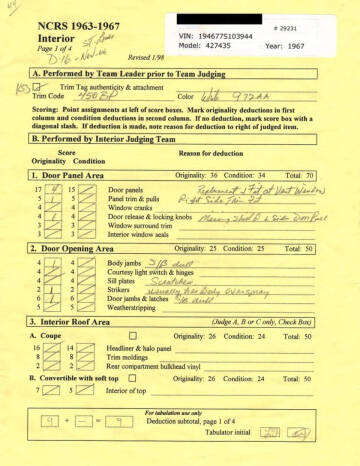 NCRS 1963-1967
Interior
Page 1 of 4
Revised 1/98
# 29231
VIN: 194677S103944
Model: 427435 Year: 1967
A. Performed by Team Leader prior to Team Judging
Trim Tag authenticity & attachment
Trim Code 450BP Color White 972AA
Scoring: Point assignments at left of score boxes. Mark originality deductions in first
column and condition deductions in second column. If no deduction, mark score box with a
diagonal slash. If deduction is made, note reason for deduction to right of judged item.
B. Performed by Interior Judging Team
Score Reason for deduction
Originality Condition
1. Door Panel Area Originality: 36 Condition: 34 Total: 70
17 4 15 Door panels Replacement & Fat at Vent Window
5 1 5 Panel trim & pulls Right Side Trim Fit
4 4 Window cranks
4 4 Door release & locking knobs
3 3 Window surround trim
3 3 Interior window seals
2. Door Opening Area Originality: 25 Condition: 25 Total: 50
4 4 Body jambs S/B dull
4 4 Courtesy light switch & hinges
4 4 Sill plates Scratches
2 2 Strikers
6 6 Door jambs & latches S/B dull
5 5 Weatherstripping
3. Interior Roof Area (Judge A, B or C only, Check Box)
A. Coupe Originality: 26 Condition: 24 Total: 50
16 14 Headliner & halo panel
8 8 Trim moldings
2 2 Rear compartment bulkhead vinyl
B. Convertible with soft top Originality: 26 Condition: 24 Total: 50
7 5 Interior of top
For tabulation use only
9 + — = 9 Deduction subtotal, page 1 of 4
Tabulator initial